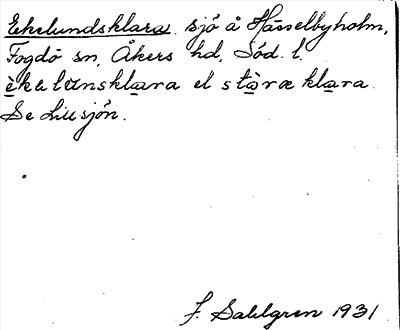 Ekelundsklara sjö å Hässelbyholm,
Fogdö sn, Åkers hd, Söd. l.
è̱kelunskla̱ra el stò̱ræ kla̱ra.
Se Lillsjön.
J. Sahlgren 1931